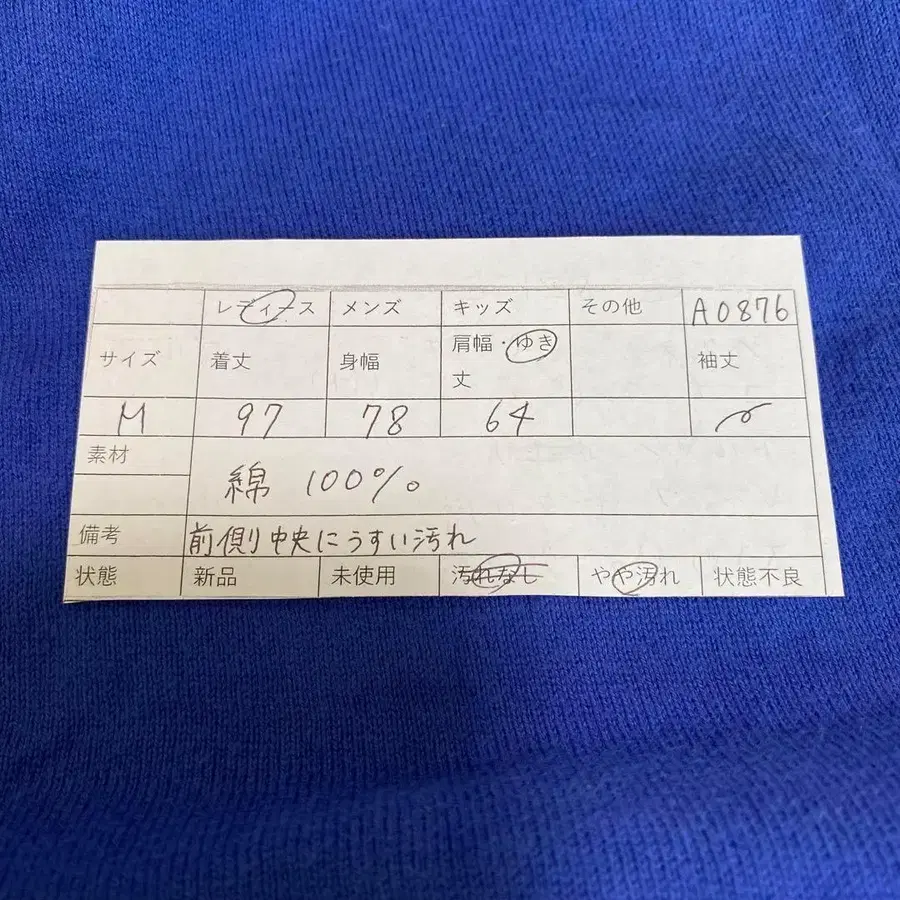 レディース メンズ キッズ その他 A0876
サイズ 着丈 身幅 肩幅・ゆき丈 袖丈
M 97 78 64
素材
綿 100%
備考 前側中央にうすい汚れ
状態 新品 未使用 汚れなし やや汚れ 状態不良